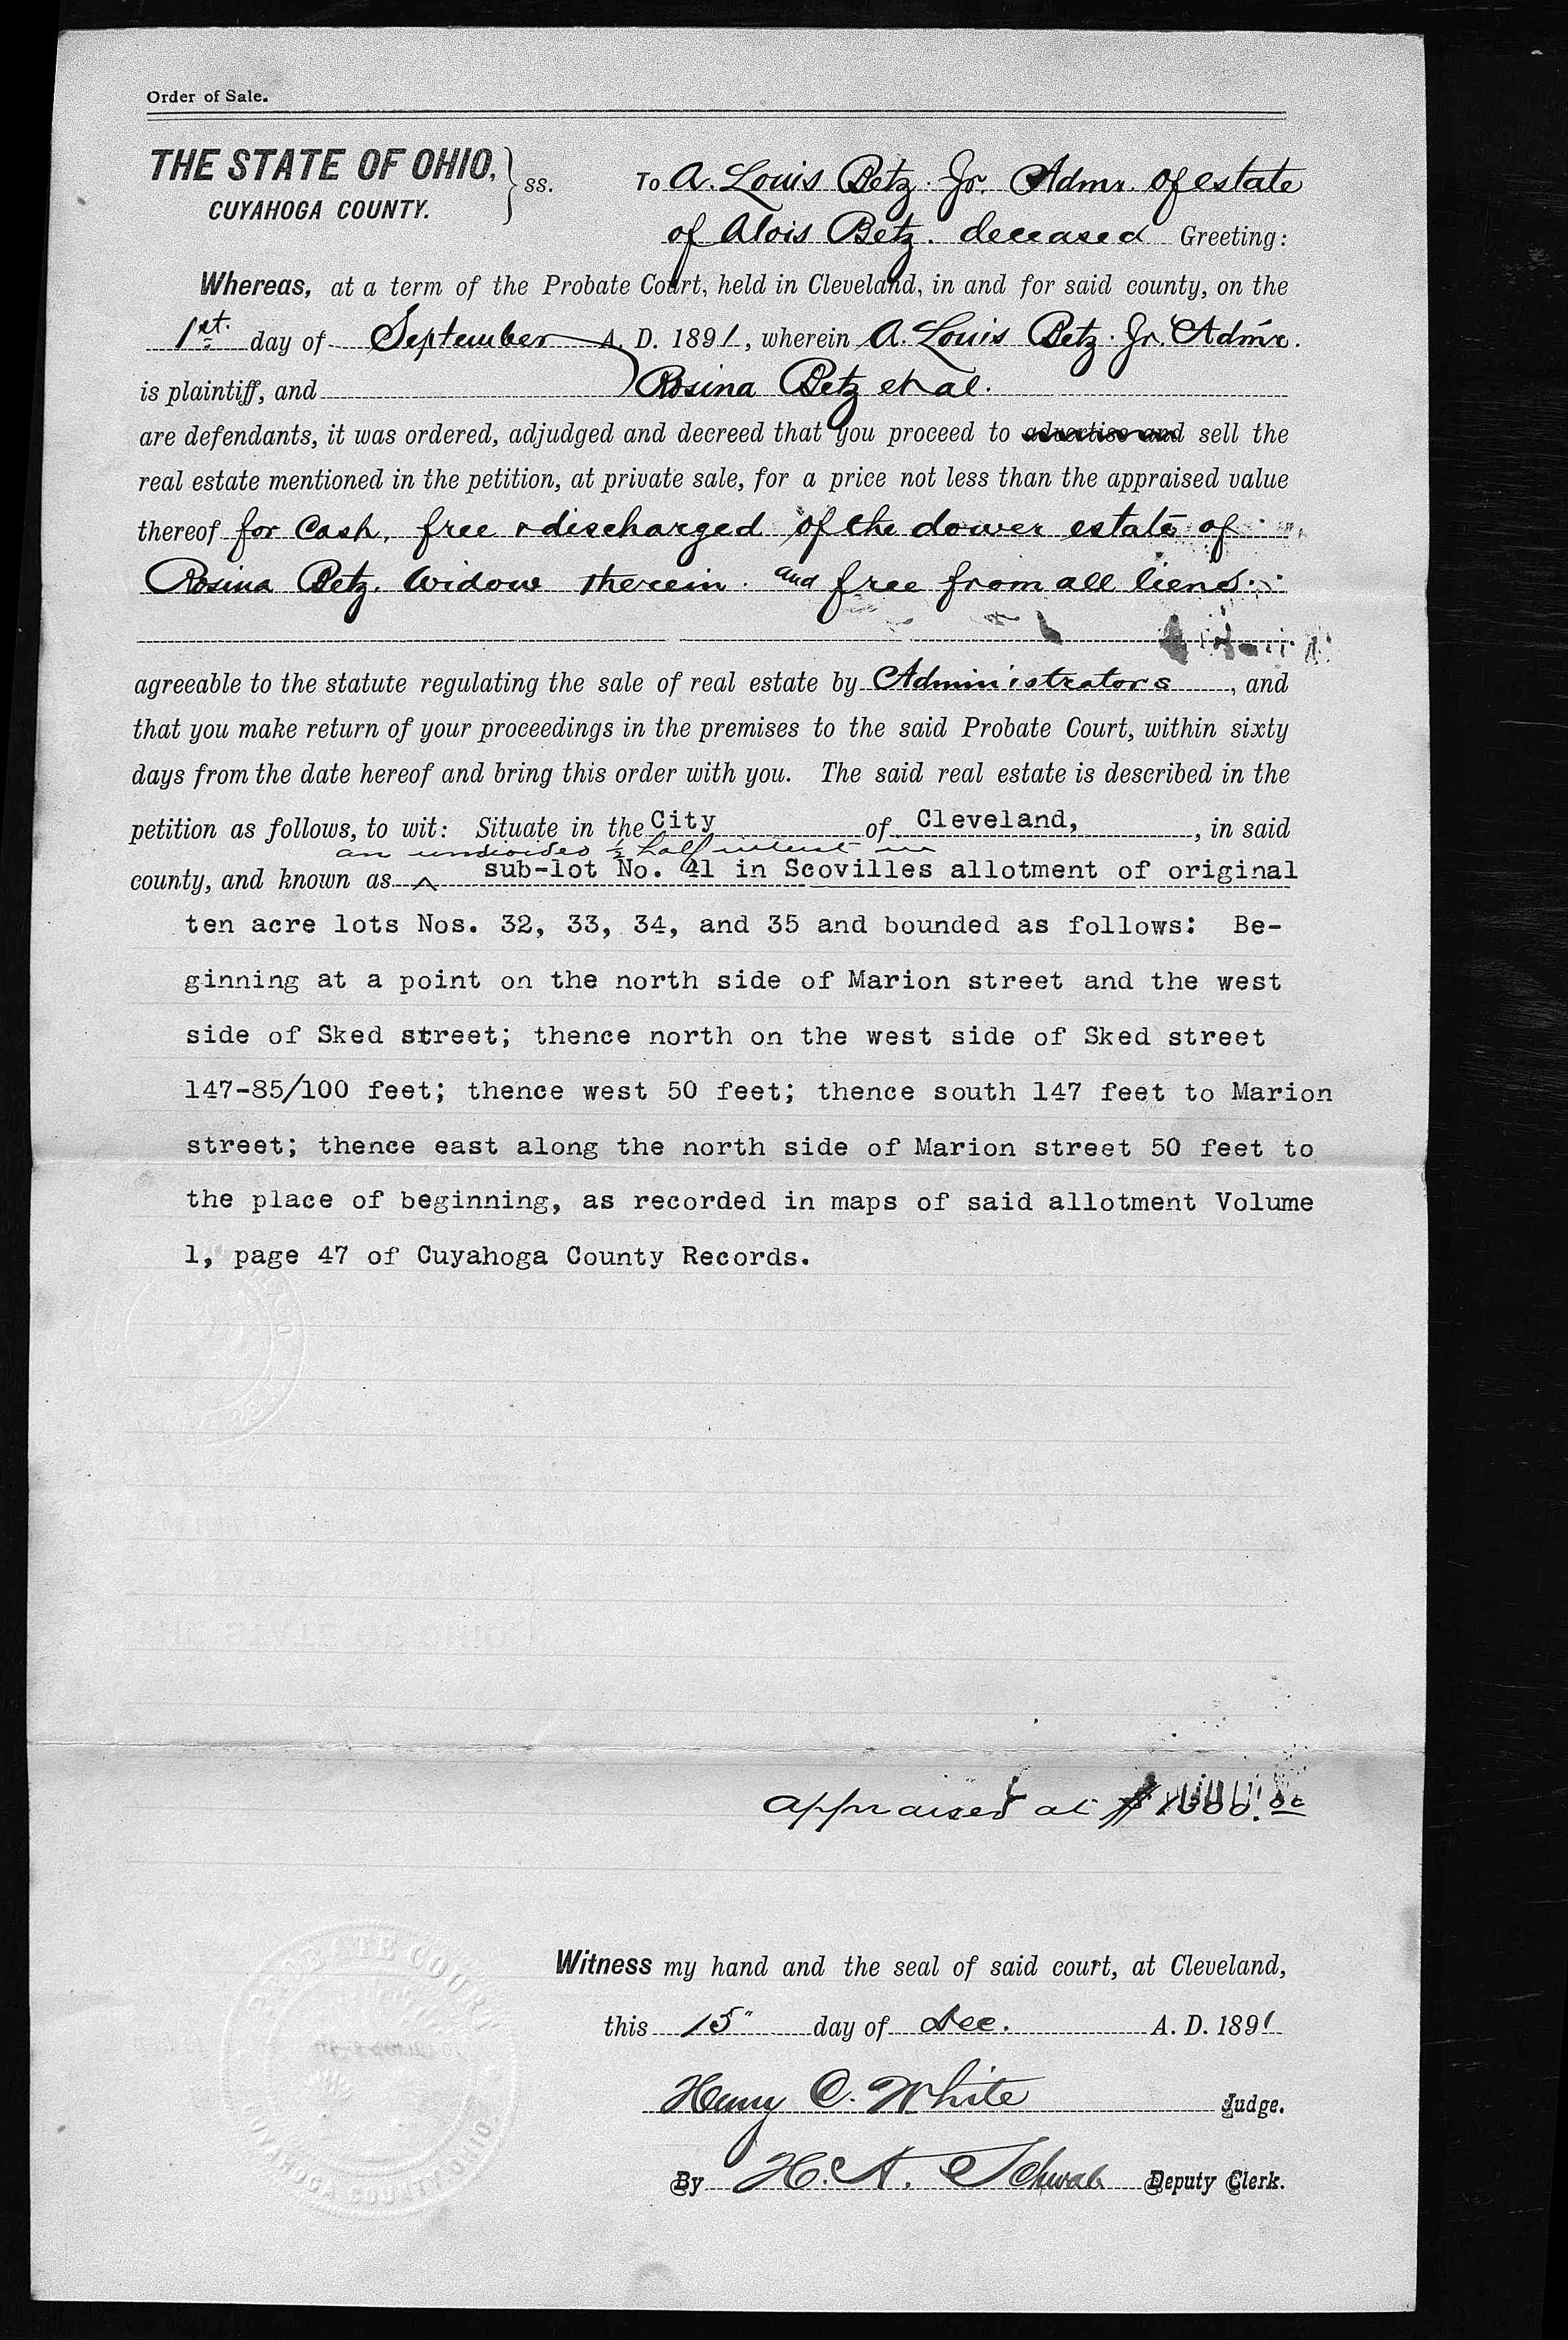 Order of Sale.
THE STATE OF OHIO, } ss. To A. Louis Betz. Jr. Admr. of estate
CUYAHOGA COUNTY. of Alois Betz. deceased Greeting:
Whereas, at a term of the Probate Court, held in Cleveland, in and for said county, on the
1st. day of September A. D. 1891, wherein A. Louis Betz. Jr. Admr.
is plaintiff, and Rosina Betz et al.
are defendants, it was ordered, adjudged and decreed that you proceed to advertise and sell the
real estate mentioned in the petition, at private sale, for a price not less than the appraised value
thereof for Cash, free & discharged of the dower estate of
Rosina Betz. Widow therein. and free from all liens.
agreeable to the statute regulating the sale of real estate by Administrators, and
that you make return of your proceedings in the premises to the said Probate Court, within sixty
days from the date hereof and bring this order with you. The said real estate is described in the
petition as follows, to wit: Situate in the City of Cleveland, , in said
an undivided ½ half interest in
county, and known as ^ sub-lot No. 41 in Scovilles allotment of original
ten acre lots Nos. 32, 33, 34, and 35 and bounded as follows: Be-
ginning at a point on the north side of Marion street and the west
side of Sked street; thence north on the west side of Sked street
147-85/100 feet; thence west 50 feet; thence south 147 feet to Marion
street; thence east along the north side of Marion street 50 feet to
the place of beginning, as recorded in maps of said allotment Volume
1, page 47 of Cuyahoga County Records.
appraised at
Witness my hand and the seal of said court, at Cleveland,
this 15" day of Dec. A. D. 1891
Henry C. White Judge.
By H. A. Schwab Deputy Clerk.
PROBATE COURT
CUYAHOGA COUNTY OHIO